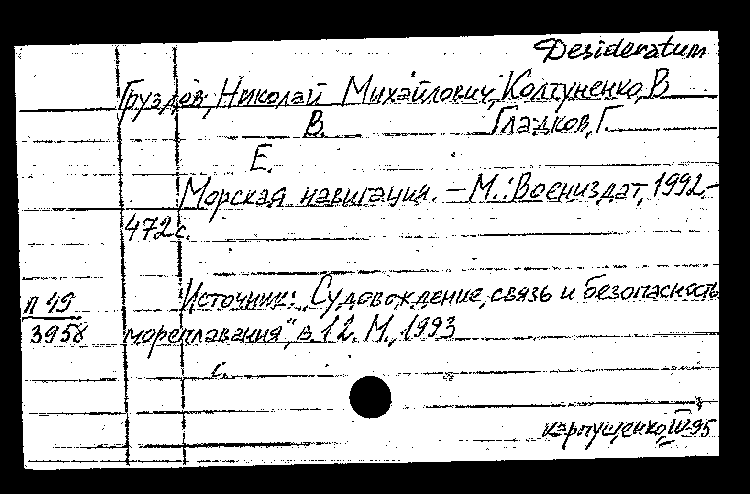 Desideratum
Груздев, Николай Михайлович, Колтуненко, В
В. Гладков, Г.
Е.
Морская навигация. — М.: Воениздат, 1992.-
472 с.
П 49 Источник: „Судовождение, связь и безопасность
3958 мореплавания", в. 12. М., 1993
с.
Карпущенко III-95